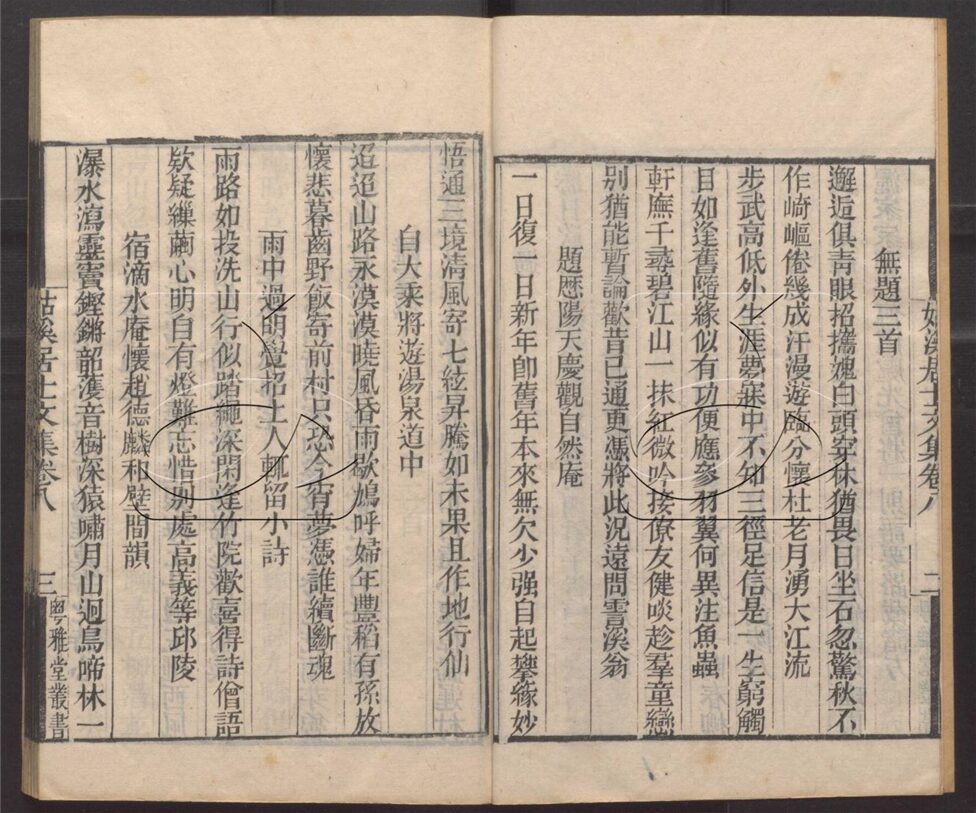 姑溪居士文集卷八
二
無題三首
邂逅俱靑眼招攜媿白頭穿林猶畏日坐石忽驚秋不
作崎嶇倦幾成汗漫遊臨分懷杜老月湧大江流
步武高低外生涯夢寐中不知三徑足信是一生窮觸
目如逢舊隨緣似有功便應參羽翼何異注魚蟲
軒廡千尋碧江山一抹紅微吟接僚友健啖趁羣童戀
別猶能暫論歡昔已通更憑將此況遠問霅溪翁
題歴陽天慶觀自然庵
一日復一日新年卽舊年本來無欠少强自起攀緣妙
悟通三境清風寄七絃昇騰如未果且作地行仙
自大乘將遊湯泉道中
迢迢山路永漠漠曉風昏雨歇鳩呼婦年豐稻有孫放
懷悲暮齒野飯寄前村只恐今宵夢憑誰續斷魂
雨中過明覺招士人輒留小詩
雨路如投洗山行似踏繩深閑逢竹院歡喜得詩僧語
欵疑繅繭心明自有燈難忘惜別處高義等邱陵
宿滴水庵懷趙德麟和壁間韻
瀑水瀉靈竇鏗鏘韶濩音樹深猿嘯月山迥鳥啼林一
姑溪居士文集卷八
三
粤雅堂叢書